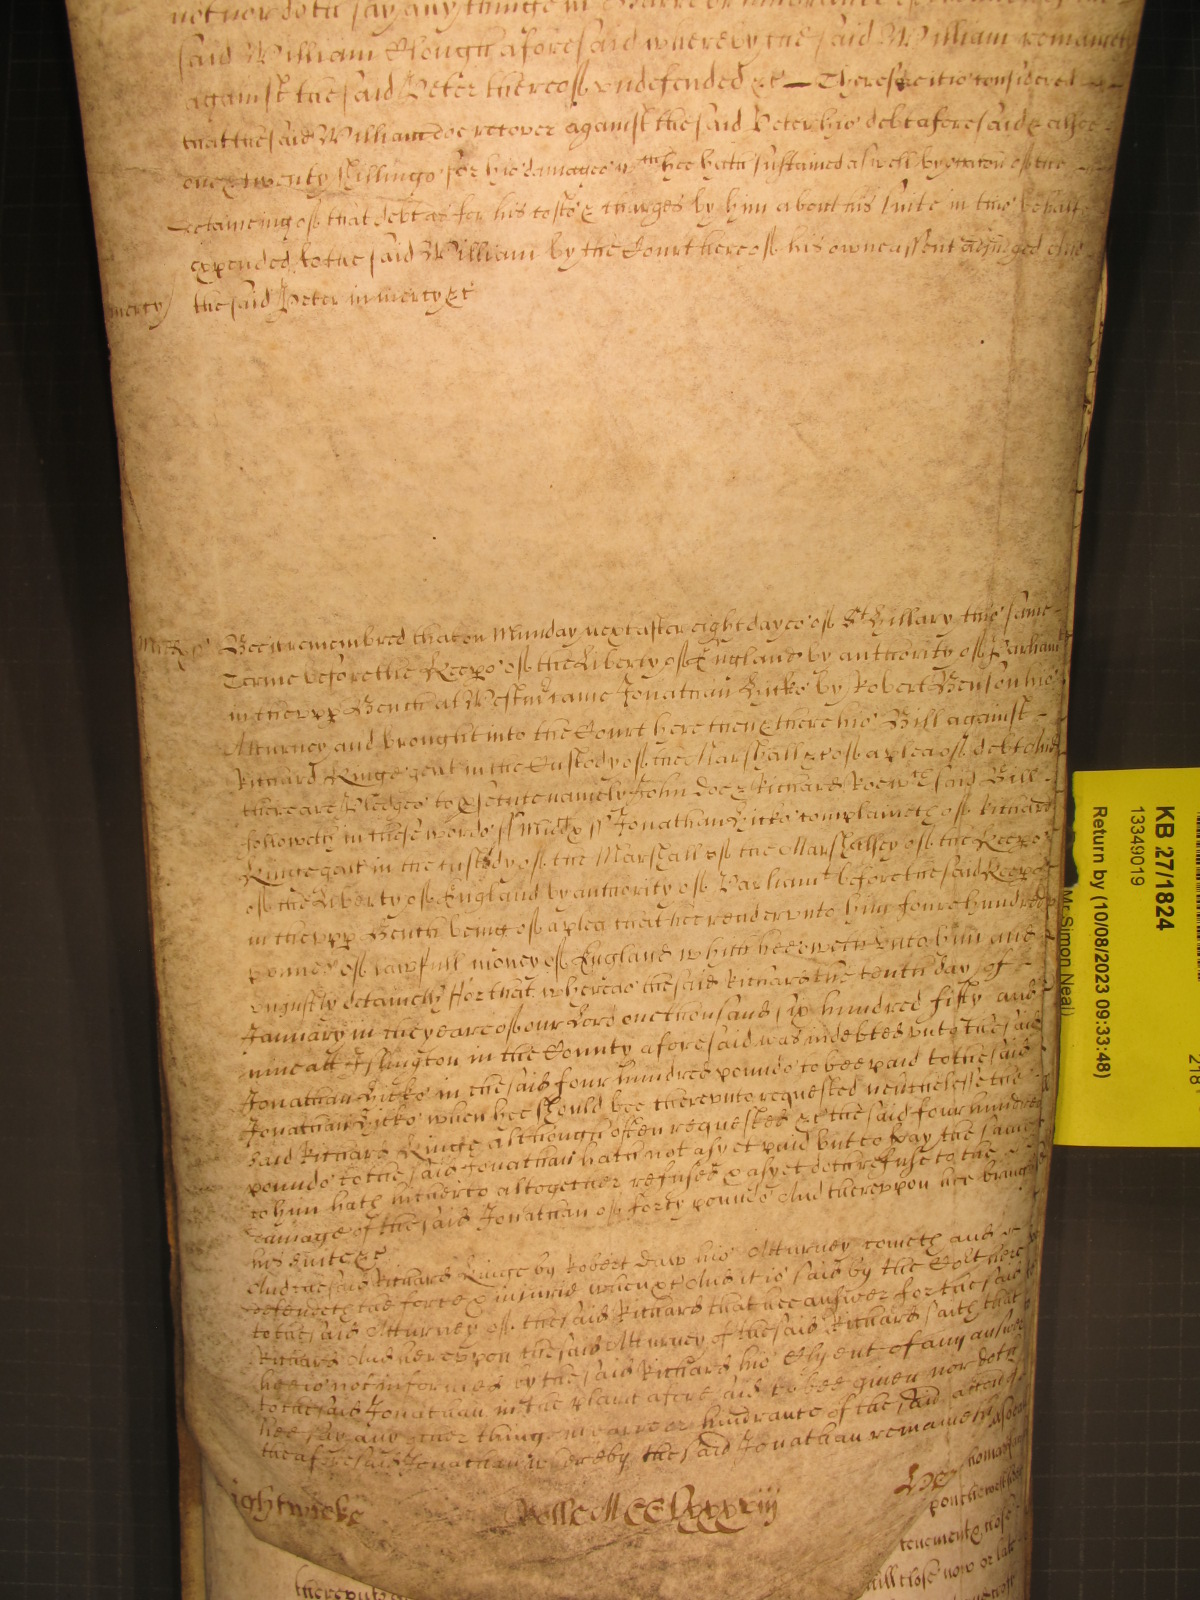 not nor doth say any thinge in Barre or
said William Clough aforesaid whereby the said William remaineth
against the said Peter thereof undefended &c — Therefore it is considered
that the said William doe recover against the said Peter his debt aforesaid & alsoe
one & twenty shillings for his damages wch hee hath susteined aswell by occacon of the
detaineing of that debt as for his costs & charges by him about his suite in this behalfe
expended to the said William by the Court here of his owne assent adjudged And
mercy the said Peter in mercy &c
Midx ss Bee it remembred that on Munday next after eight dayes of St Hillary this same
Terme before the Keeps of the Liberty of England by authority of Parliamt
in the upp Bench at Westm came Jonathan Hicks by Robert Benson his
Atturney and brought into the Court here then & there his Bill against
Richard Kinge gent in the Custody of the Marshall &c of a plea of debt And
there are Pledges to prosecute namely John Doe & Richard Roe wch said Bill
followeth in these words ss Midx ss Jonathan Hicks complaineth of Richard
Kinge gent in the Custody of the Marshall of the Marshalsey of the Keeps
of the Liberty of England by authority of Parliamt before the said Keeps
in the upp Bench being of a plea that hee render unto him foure hundred
pounds of lawfull money of England which hee oweth unto him and
unjustly detaineth For that whereas the said Richard the tenth day of
January in the yeare of our Lord one thousand six hundred fifty and
nine att Islington in the County aforesaid was indebted unto the said
Jonathan Hicks in the said four hundred pounds to bee paid to the said
Jonathan Hicks when hee should bee thereunto requested neverthelesse the
said Richard Kinge although often requested &c the said four hundred
pounds to the said Jonathan hath not as yet paid but to pay the same
to him hath hitherto altogether refused & as yet doth refuse to the
damage of the said Jonathan of forty pounds And thereupon hee brings
his suite &c
And the said Richard Kinge by Robert Daw his Atturney cometh and
defendeth the force & injurie when &c And it is said by the Cort here
to the said Atturney of the said Richard that hee answer for the said
Richard And hereupon the said Atturney of the said Richard saith that
hee is not informed by the said Richard his Clyent of any answer
to the said Jonathan in the plaint aforesaid to bee given nor doth
hee say any other thing in barre or hindrance of the said accon of
the aforesaid Jonathan whereby the said Jonathan remaineth
ightwicke Rolle MCClxxxiij
tenement
close now or late
thereunto
KB 27/1824
13349019
Return by (10/08/2023 09:33:48)
Mr Simon Neal
218